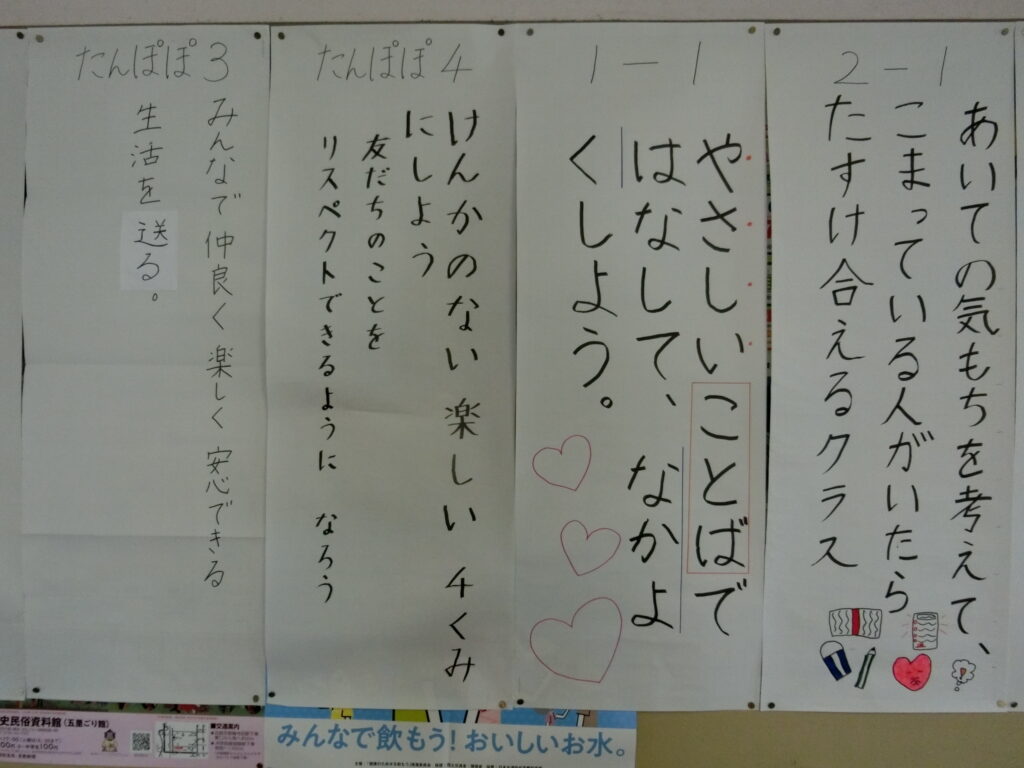 たんぽぽ3
みんなで 仲良く 楽しく 安心できる
生活を 送る。
たんぽぽ4
けんかのない 楽しい 4くみ
にしよう
友だちのことを
リスペクトできるように なろう
1－1
やさしいことばで
はなして、なかよ
くしよう。
2－1
あいての気もちを考えて、
こまっている人がいたら
たすけ合えるクラス
史民俗資料館（五墨ごり館）
■交通案内
みんなで飲もう!おいしいお水。